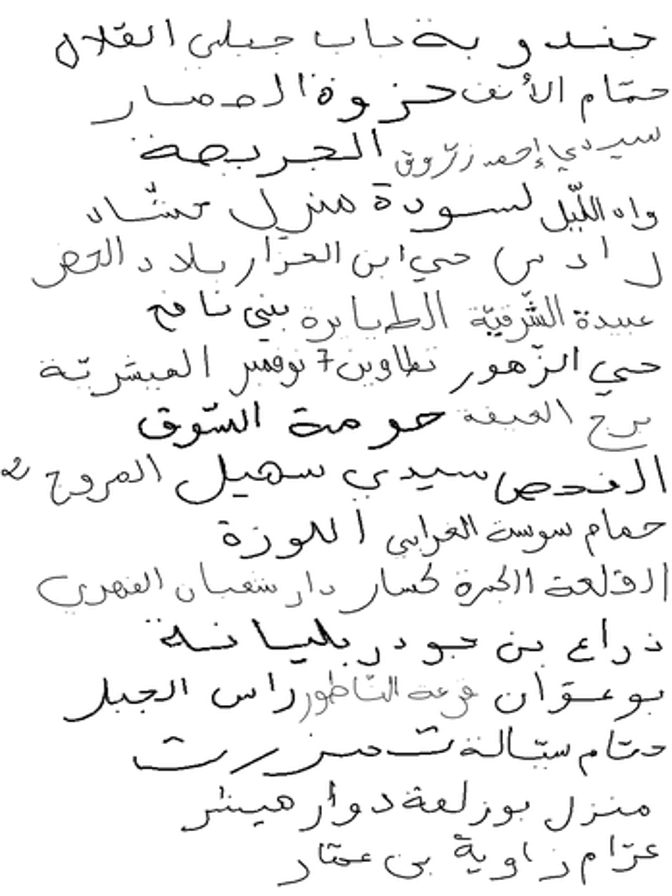 جندوبة باب جبلي القلال
حمّام الأنف حزوة الحصار
سيدي إحمد زرّوق الجريصة
واد اللّيل لسودة منزل حشّاد
رادس حي ابن الجزار بلاد الحضر
عبيدة الشّرقيّة الطيايرة بني نافع
حي الزّهور تطاوين 7 نوفمبر المبشريّة
برج العيفة حومة السّوق
الفحص سيدي سهيل المروج 2
حمام سوسة الغرابي اللوزة
القلعة الكبرة كسار دار شعبان الفهري
ذراع بن جودر بليانة
بوعوّان قرعة النّاظور راس الجبل
حمّام سيّالة بنزرت
منزل بوزلفة دوار هيشر
عزّام زاوية بن عمّار